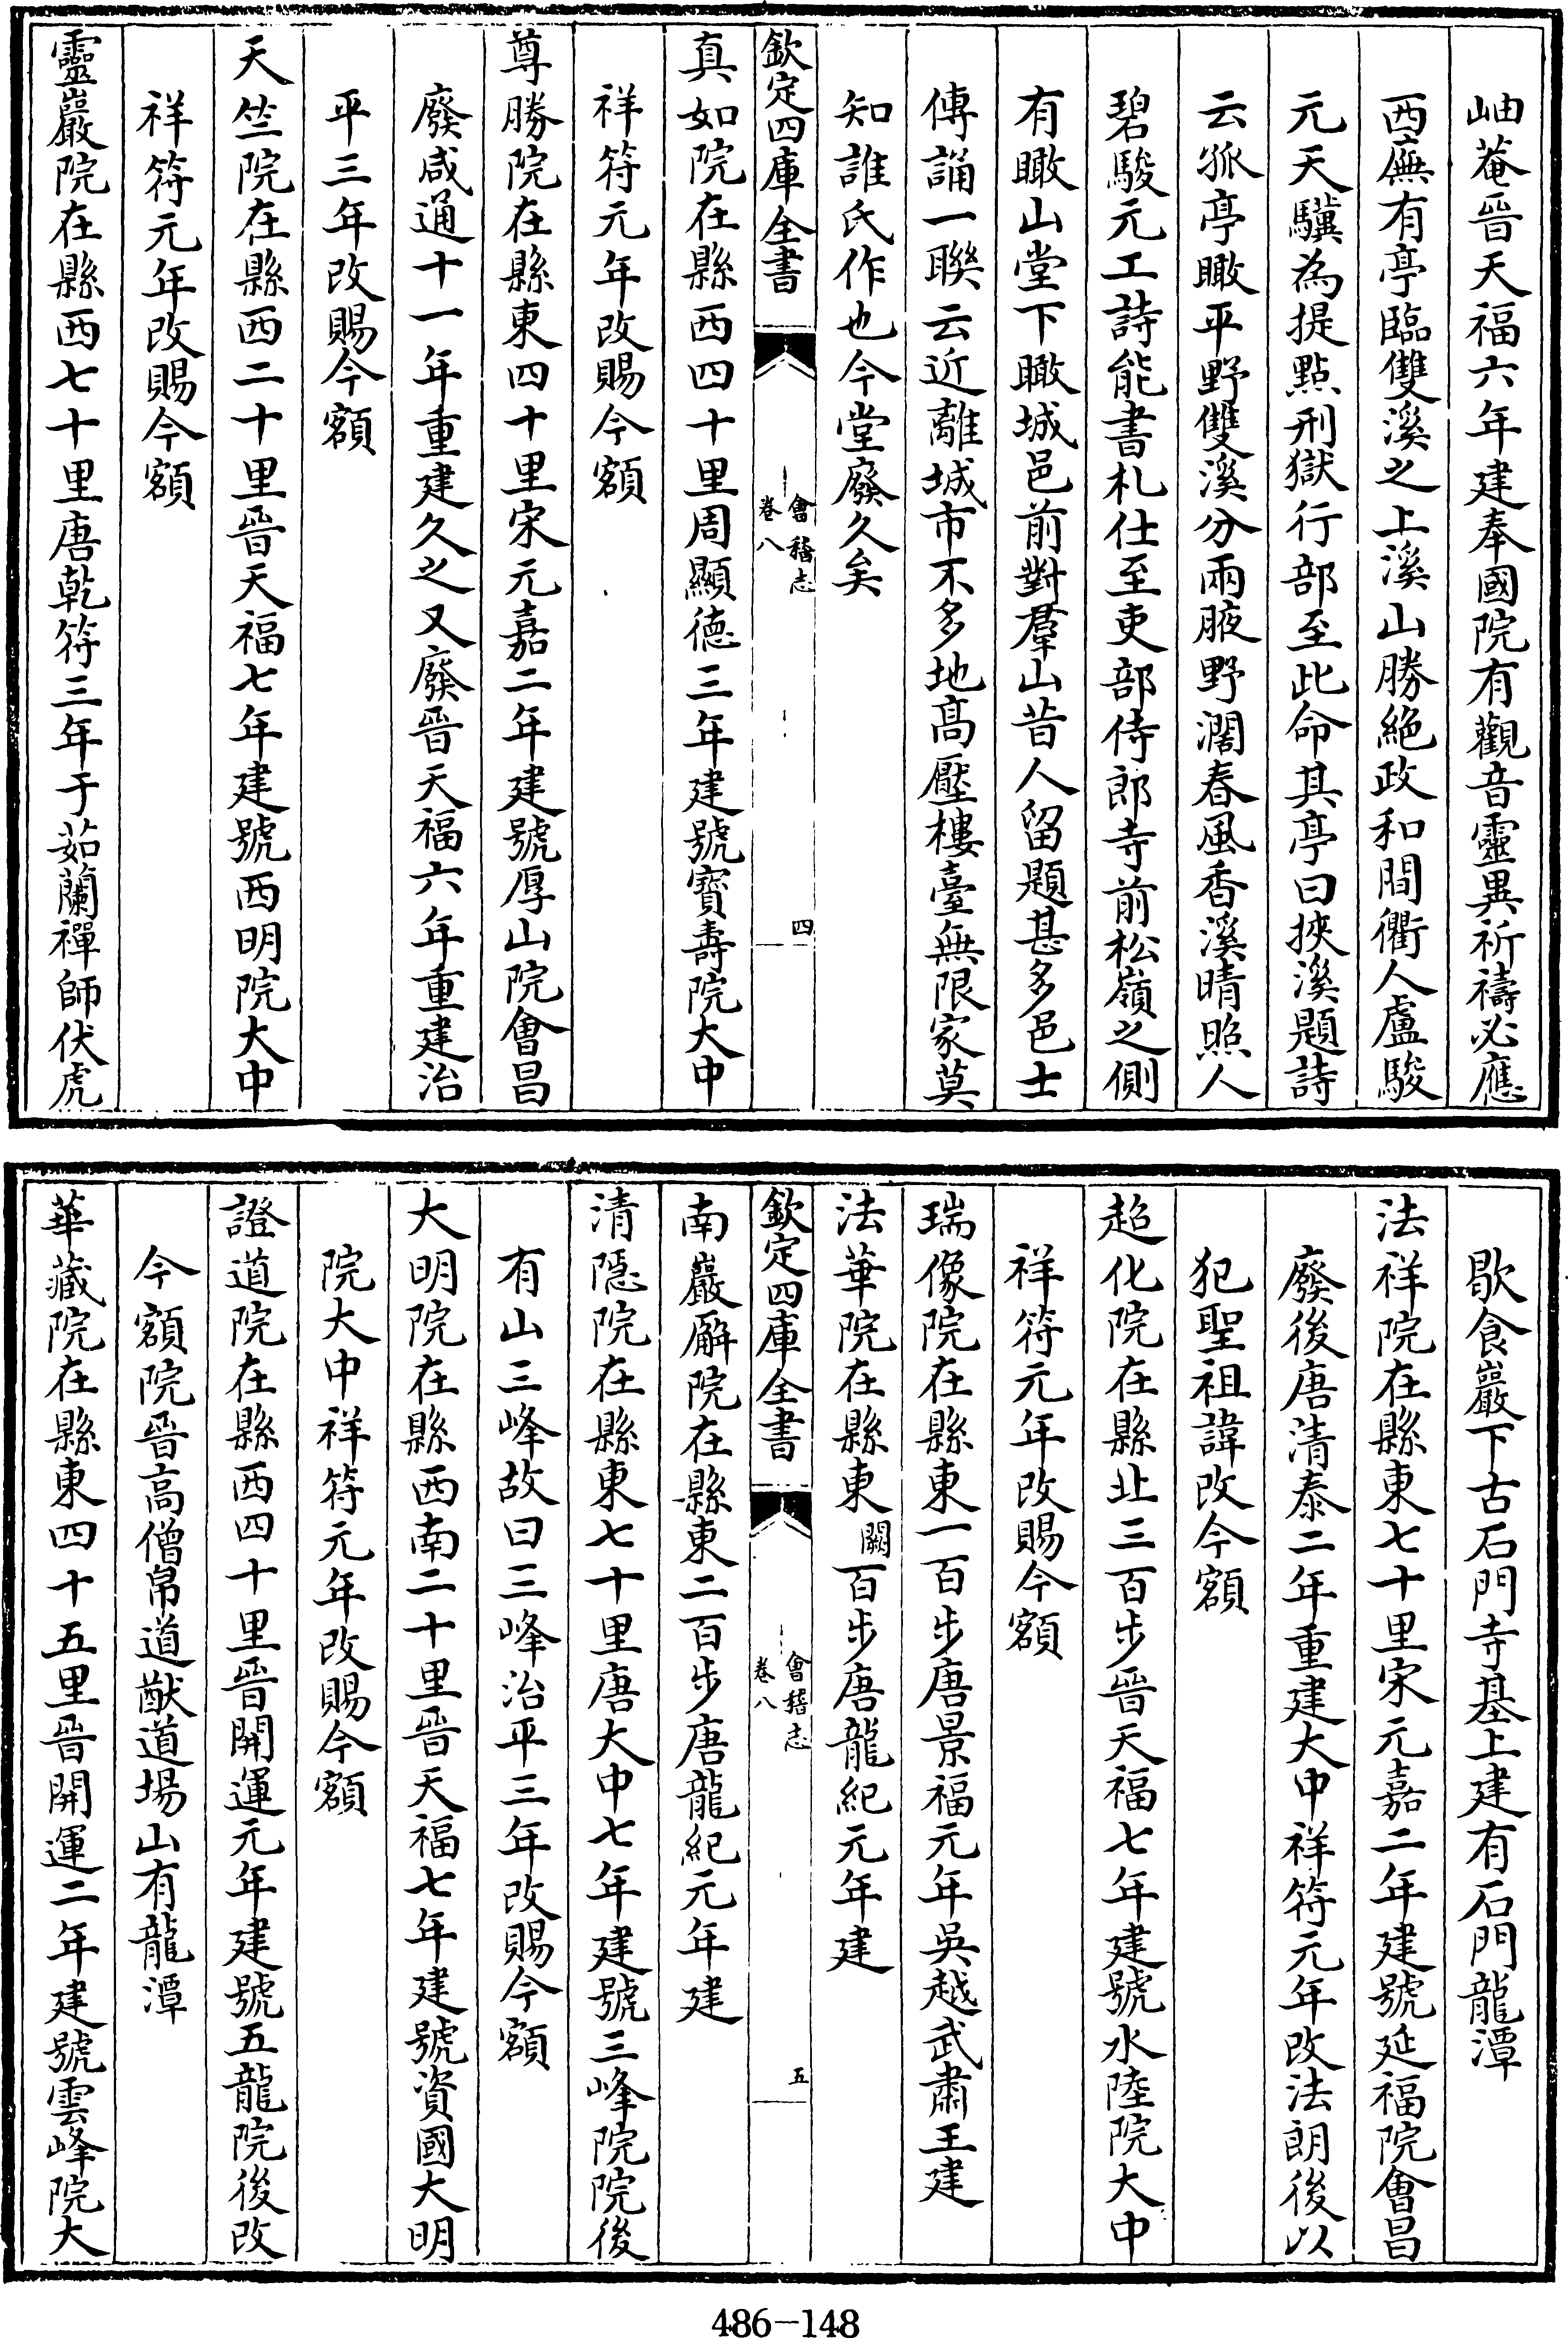 岫菴晉天福六年建奉國院有觀音靈異祈禱必應
西廡有亭臨雙溪之上溪山勝絶政和間衢人盧駿
元天驥為提點刑獄行部至此命其亭曰挾溪題詩
云孤亭瞰平野雙溪分兩腋野濶春風香溪晴照人
碧駿元工詩能書札仕至吏部侍郎寺前松嶺之側
有瞰山堂下瞰城邑前對羣山昔人留題甚多邑士
傳誦一聯云近離城市不多地髙壓樓臺無限家莫
知誰氏作也今堂廢久矣
欽定四庫全書
會稽志
卷八
四
真如院在縣西四十里周顯德三年建號寳壽院大中
祥符元年改賜今額
尊勝院在縣東四十里宋元嘉二年建號厚山院會昌
廢咸通十一年重建久之又廢晉天福六年重建治
平三年改賜今額
天竺院在縣西二十里晉天福七年建號西明院大中
祥符元年改賜今額
靈巖院在縣西七十里唐乾符三年于茹蘭禪師伏虎
歇食巖下古石門寺基上建有石門龍潭
法祥院在縣東七十里宋元嘉二年建號延福院會昌
廢後唐清泰二年重建大中祥符元年改法朗後以
犯聖祖諱改今額
超化院在縣北三百步晉天福七年建號水陸院大中
祥符元年改賜今額
瑞像院在縣東一百步唐景福元年吳越武肅王建
法華院在縣東闕百步唐龍紀元年建
欽定四庫全書
會稽志
卷八
五
南巖廨院在縣東二百步唐龍紀元年建
清隱院在縣東七十里唐大中七年建號三峰院院後
有山三峰故曰三峰治平三年改賜今額
大明院在縣西南二十里晉天福七年建號資國大明
院大中祥符元年改賜今額
證道院在縣西四十里晉開運元年建號五龍院後改
今額院晉高僧帛道猷道場山有龍潭
華藏院在縣東四十五里晉開運二年建號雲峰院大
486-148